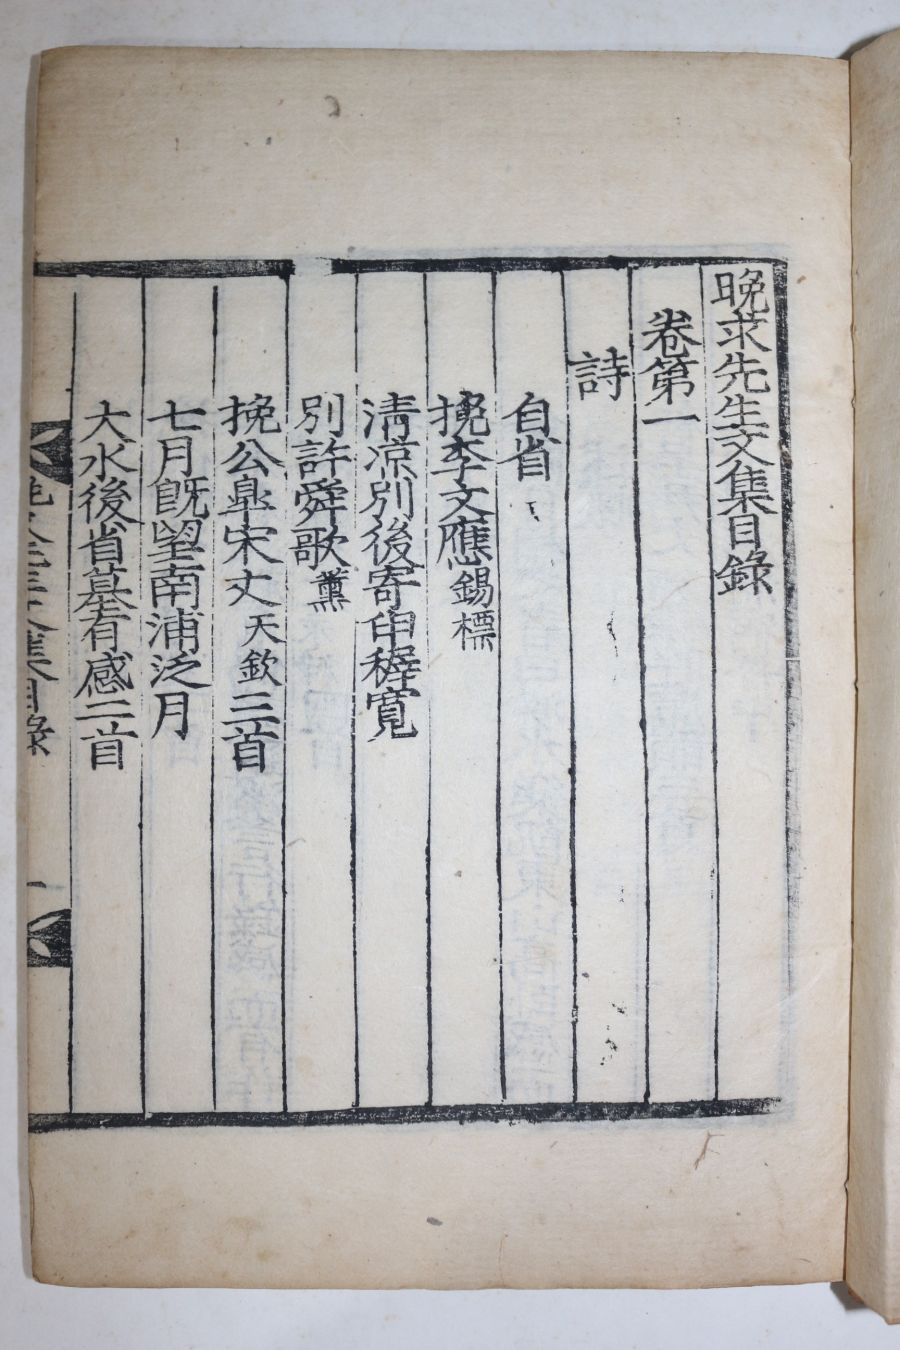 晚求先生文集目錄
卷第一
詩
自省
挽李文應錫標
清凉別後寄申穉寬
別許舜歌薰
挽公㿟宋丈天欽三首
七月旣望南浦泛月
大水後省墓有感二首
晚求先生文集目錄 一